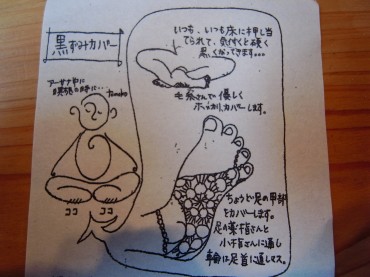 黒ずみカバー
いつも、いつも床に押し当
てられて、気付くと硬く
黒くなってきます。。。
アーサナ中に
瞑想の時に…
毛糸さんで優しく
ホッカリ、カバーします。
ココ ココ
ちょうど足の甲部
をカバーします。
足の薬指さんと
小指さんに通し
輪は足首に通してマス。